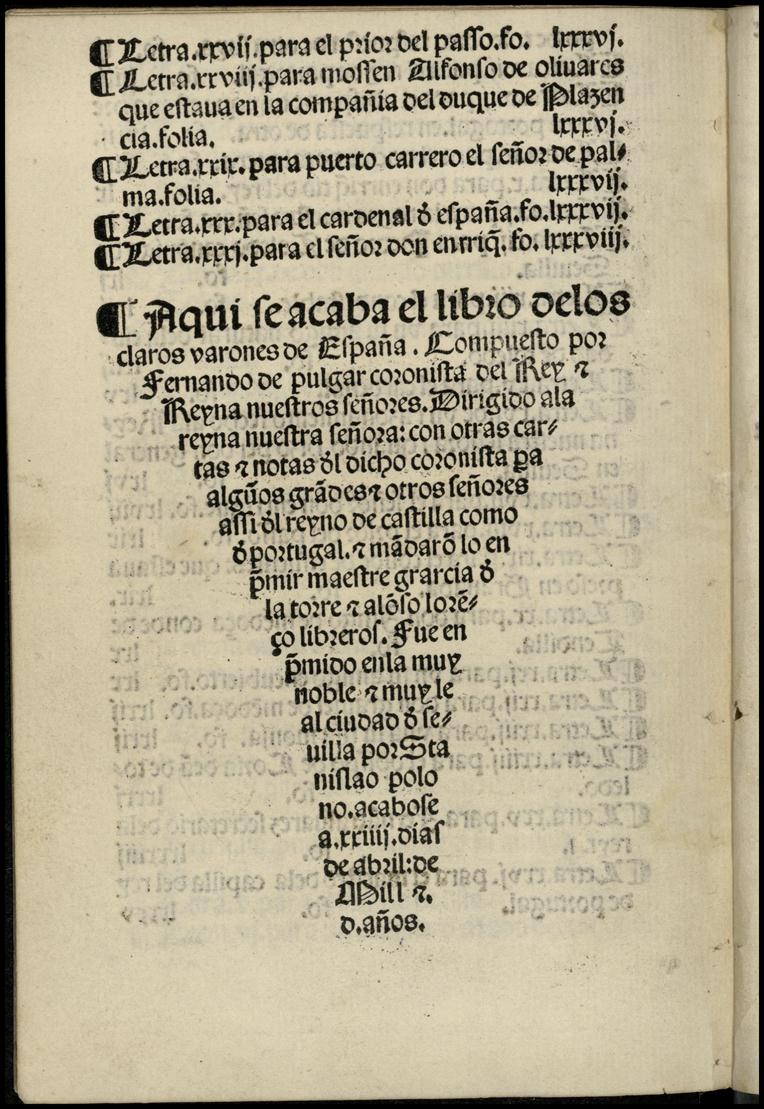 ¶ Letra.xxvij.para el prior del passo.fo. lxxxvj.
¶ Letra.xxviij.para mossen Alfonso de oliuares
que estaua en la compañia del duque de Plazen
cia.folia. lxxxvj.
¶ Letra.xxix.para puerto carrero el señor de pal⸗
ma.folia. lxxxvij.
¶ Letra.xxx.para el cardenal đ españa.fo.lxxxvij.
¶ Letra.xxxj.para el señor don enrriq̃. fo. lxxxviij.
¶ Aqui se acaba el libro delos
claros varones de España. Compuesto por
Fernando de pulgar coronista del Rey ⁊
Reyna nuestros señores. Dirigido ala
reyna nuestra señora: con otras car⸗
tas ⁊ notas đl dicho coronista ꝑa
algũos grãdes ⁊ otros señores
assi đl reyno de castilla como
đ portugal. ⁊ mãdarõ lo en
p̃mir maestre grarcia đ
la torre ⁊ alõso lorẽ⸗
ço libreros. Fue en
p̃mido enla muy
noble ⁊ muy le
al ciudad đ se⸗
uilla por Sta
nislao polo
no. acabose
a.xxiiij.dias
de abril: de
Mill ⁊.
d.años.